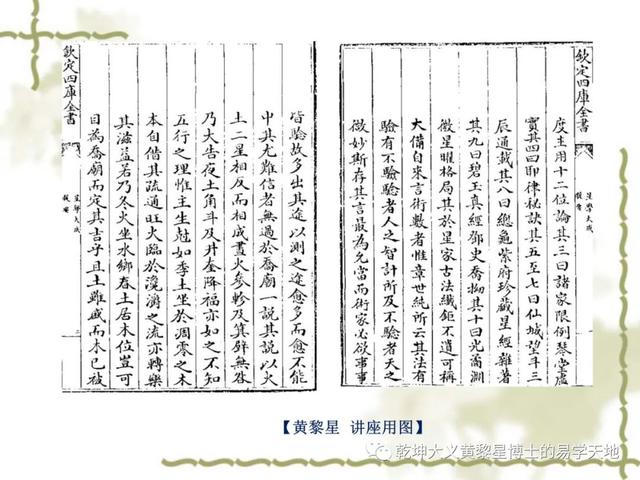 欽定四庫全書
度主用十二位論其三曰諸家限例琴堂虛
實其四曰耶律秘訣其五至七曰仙城望斗三
辰通載其八曰總龜紫府珍藏星經雜著
其九曰碧玉真經鄧史喬拗其十曰光霽淵
微星曜格局其於星家古法纖鉅不遺可稱
大備自來言術數者惟章世純所云其法有
驗有不驗驗者人之智計所及不驗者天之
微妙斯存其言最為允當而術家必欲事事
星學大成
提要
皆驗故多出其途以測之途愈多而愈不能
中其尤難信者無過於喬廟一說其說以火
土二星相反而相成晝火參軫及箕壁無咎
乃大吉夜土角斗及井奎降福亦如之不知
五行之理惟主生尅如季土坐於凋零之木
本自其疏通旺火臨於之流亦轉樂
其滋益若乃冬火坐水鄉春土居木位豈可
目為喬廟而定其吉乎且土雖戚而木已被
欽定四庫全書
星學大成
提要
【黄黎星 讲座用图】
乾坤大义黄黎星博士的易学天地